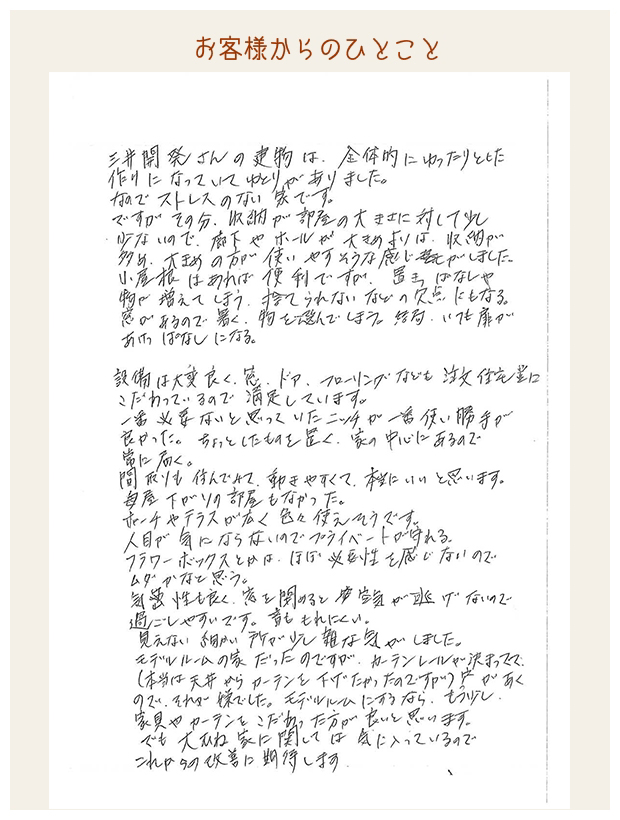 お客様からのひとこと
三井開発さんの建物は、全体的にゆったりとした
作りになっていてゆとりがありました。
なのでストレスのない家です。
ですがその分、収納が部屋の大きさに対して少し
少ないので、廊下やホールが大きめよりは、収納が
多め、大きめの方が使いやすそうな感じがしました。
小屋根はあれば便利ですが、置きっぱなしや
物が増えてしまう、捨てられないなどの欠点にもなる。
窓があるので暑く、物を選んでしまう。結局、いつも扉が
あけっぱなしになる。
設備は大変良く、窓、ドア、フローリングなども注文住宅並に
こだわっているので満足しています。
一番必要ないと思っていたニッチが一番使い勝手が
良かった。ちょっとしたものを置く、家の中心にあるので
常に届く。
間取りも住んでみて、動きやすくて、本当にいいと思います。
毎屋下がりの部屋もなかった。
ポーチやテラスが広く色々使えそうです。
人目が気にならないのでプライベートが守れる。
フラワーボックスとかは、ほぼ必要性を感じないので
ムダかなと思う。
気密性も良く、窓を閉めると空気が逃げないので
過ごしやすいです。音ももれにくい。
見えない細かい所が少し雑な気がしました。
モデルルームの家だったのですが、カーテンレールが決まってて、
(本当は天井からカーテンを下げたかったのですが)穴があく
ので、それが嫌でした。モデルルームにするなら、もう少し、
家具やカーテンをこだわった方が良いと思います。
でも大むね家に関しては気に入っているので
これからの改善に期待します。